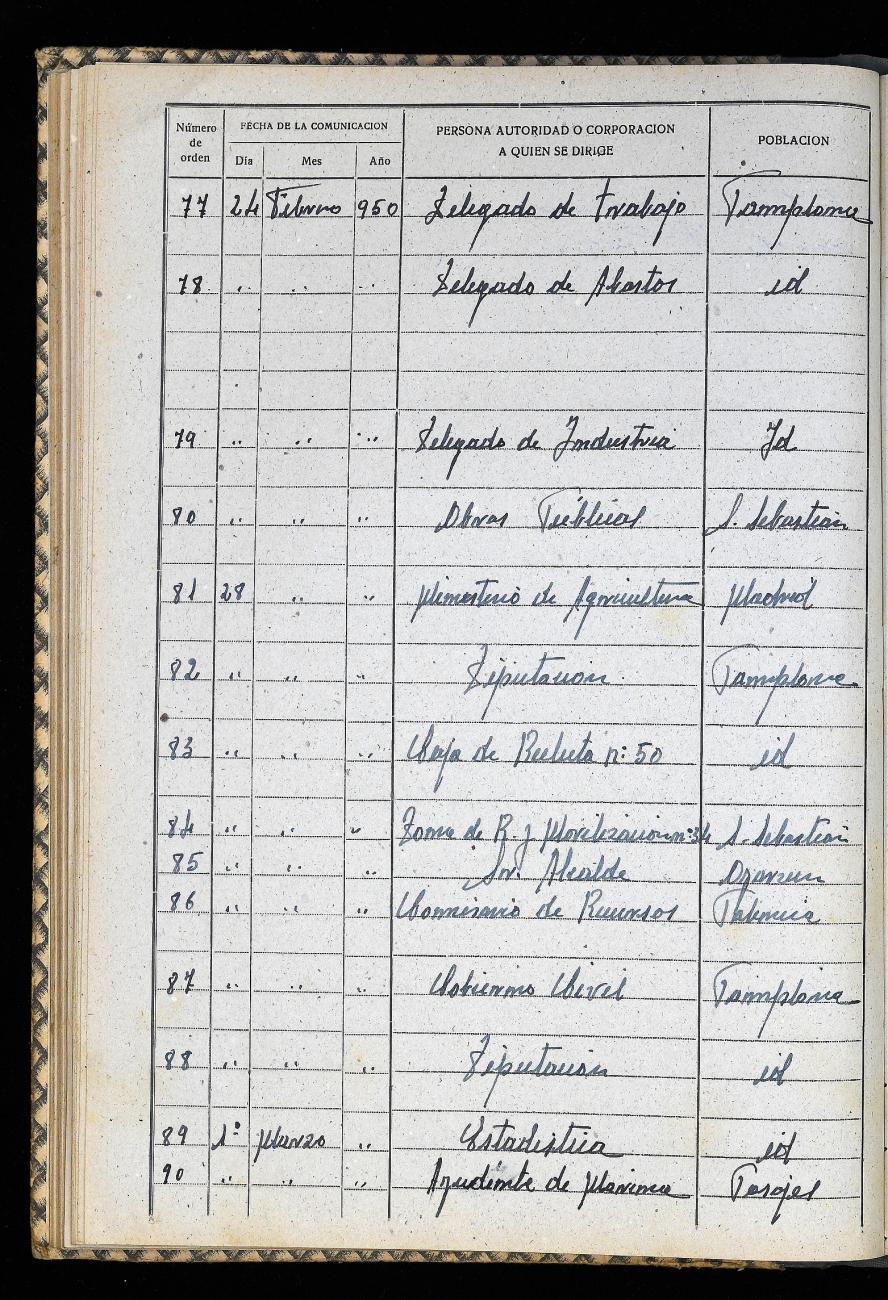 Número de orden | FECHA DE LA COMUNICACION | PERSONA AUTORIDAD O CORPORACION A QUIEN SE DIRIGE | POBLACION
Día | Mes | Año
77 24 Febrero 950 Delegado de trabajo Pamplona
78 " " " Delegado de Abastos id
79 " " " Delegado de Industria Id
80 " " " Obras Públicas S. Sebastian
81 28 " " Ministerio de Agricultura Madrid
82 " " " Diputacion Pamplona
83 " " " Caja de Recluta nº 50 id
84 " " " Zona de R. y Movilizacion nº 34 S. Sebastian
85 " " " Sr. Alcalde Oyarzun
86 " " " Comisario de Recursos Palencia
87 " " " Gobierno Civil Pamplona
88 " " " Diputacion id
89 1º Marzo " Estadistica id
90 " " " Ayudante de Marina Pasajes